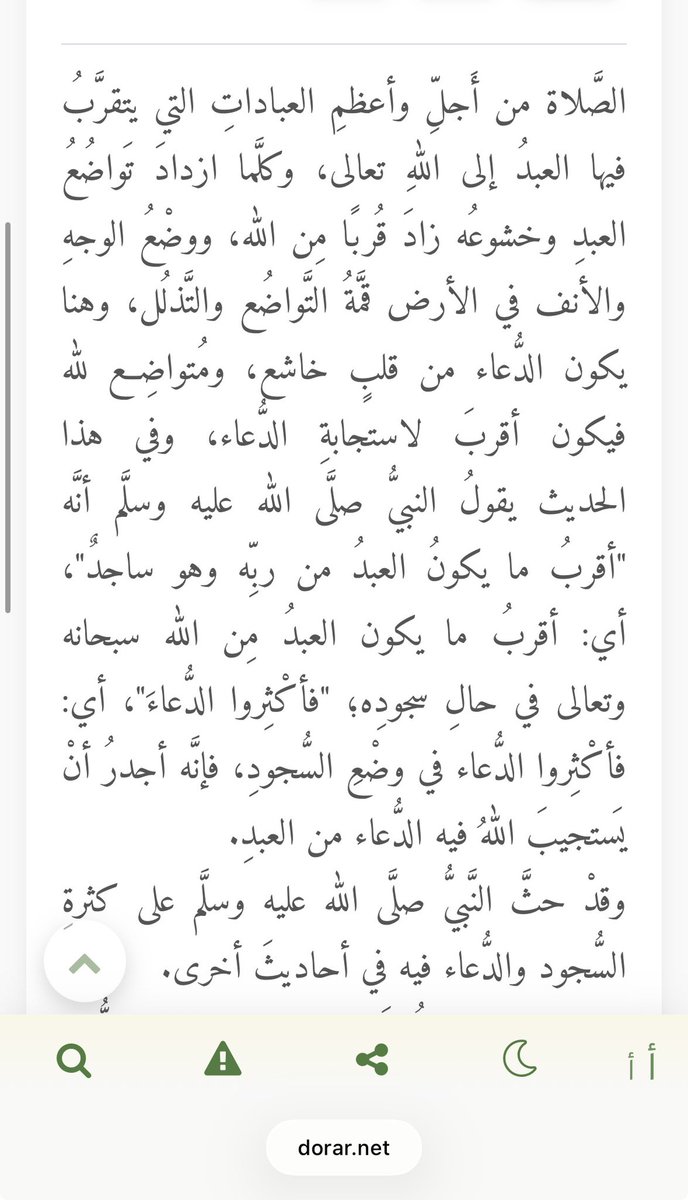 الصَّلاة من أَجلِّ وأعظمِ العباداتِ التي يتقرَّبُ
فيها العبدُ إلى اللهِ تعالى، وكلَّما ازدادَ تَواضُعُ
العبدِ وخشوعُه زادَ قُربًا مِن الله، ووضْعُ الوجهِ
والأنف في الأرض قمَّةُ التَّواضُع والتَّذلُل، وهنا
يكون الدُّعاء من قلبٍ خاشع، ومُتواضِع لله
فيكون أقربَ لاستجابةِ الدُّعاء، وفي هذا
الحديث يقولُ النبيُّ صلَّى الله عليه وسلَّم أنَّه
"أقربُ ما يكونُ العبدُ من ربِّه وهو ساجدٌ"،
أي: أقربُ ما يكون العبدُ مِن الله سبحانه
وتعالى في حالِ سجودِه؛ "فأكْثِروا الدُّعاءَ"، أي:
فأكْثِروا الدُّعاء في وضْعِ السُّجودِ، فإنَّه أجدرُ أنْ
يَستجيبَ اللهُ فيه الدُّعاء من العبدِ.
وقدْ حثَّ النَّبيُّ صلَّى الله عليه وسلَّم على كثرةِ
السُّجود والدُّعاء فيه في أحاديثَ أخرى.
أ أ
dorar.net